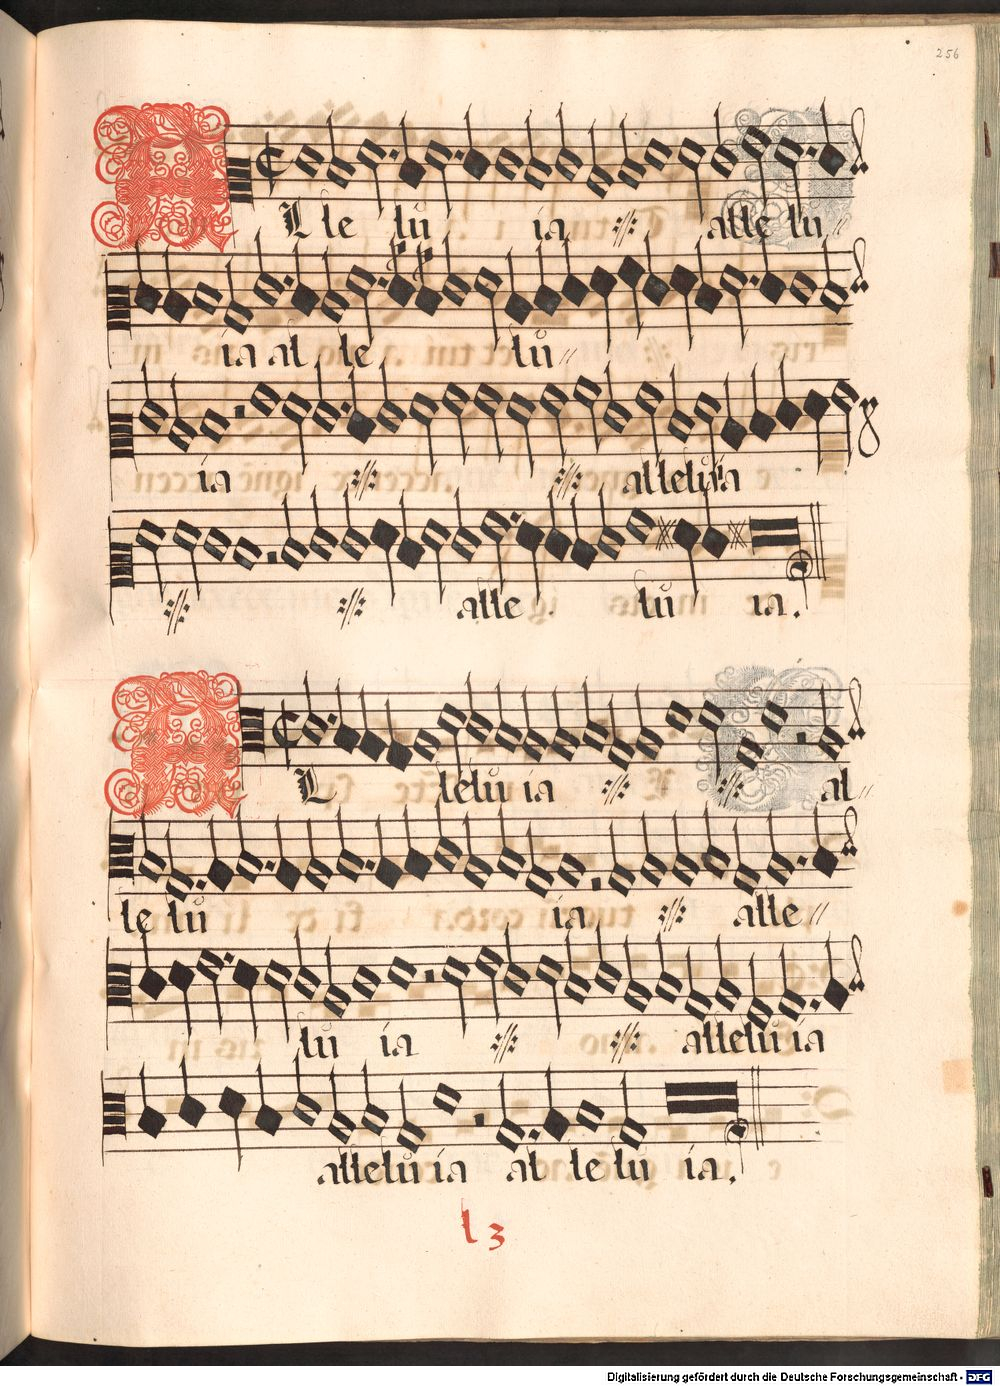 256
ALle lu ia alle lu
ia al le lu
ia alleluia
alle lu ia.
AL leluia al
le lu ia alle
lu ia alleluia
alleluia al le lu ia.
l 3
Digitalisierung gefördert durch die Deutsche Forschungsgemeinschaft - DFG